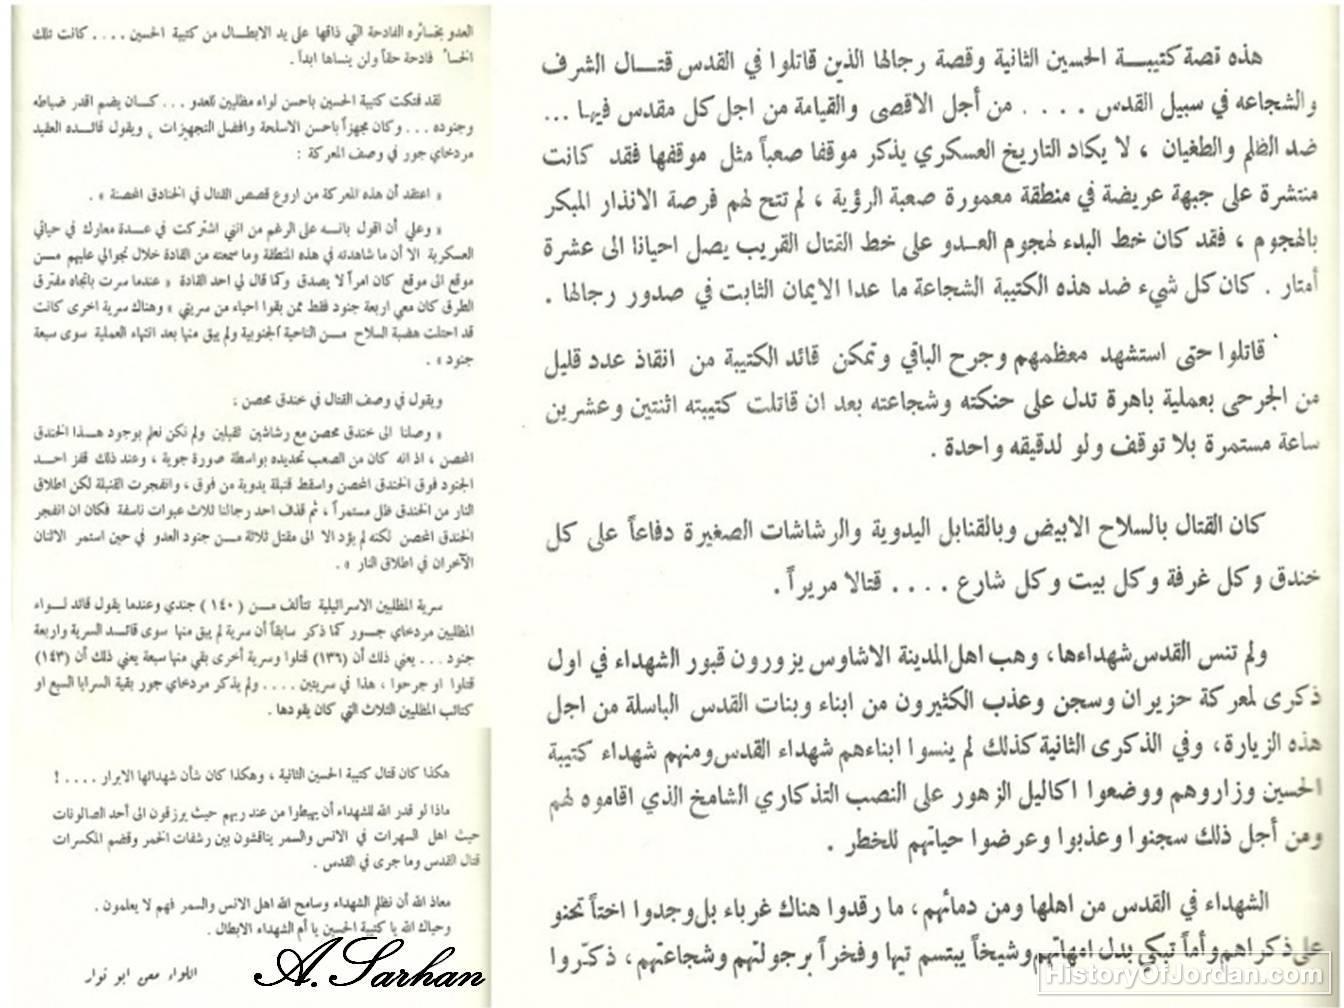 هذه قصة كتيبــة الحسين الثانية وقصة رجالها الذين قاتلوا في القدس قتــال الشرف
والشجاعه في سبيل القدس .... من أجل الاقصى والقيامة من اجل كل مقدس فيهـا ...
ضد الظلم والطغيان ، لا يكاد التاريخ العسكري يذكر موقفا صعباً مثل موقفها فقد كانت
منتشرة على جبهة عريضة في منطقة معمورة صعبة الرؤية ، لم تتح لهم فرصة الانذار المبكر
بالهجوم ، فقد كان خط البدء لهجوم العدو على خط القتال القريب يصل احيانا الى عشرة
أمتار . كان كل شيء ضد هذه الكتيبة الشجاعة ما عدا الايمان الثابت في صدور رجالها .
قاتلوا حتى استشهد معظمهم وجرح الباقي وتمكن قائد الكتيبة من انقاذ عدد قليل
من الجرحى بعملية باهرة تدل على حنكته وشجاعته بعد ان قاتلت كتيبته اثنتين وعشرين
ساعة مستمرة بلا توقف ولو لدقيقه واحدة .
كان القتال بالسلاح الابيض وبالقنابل اليدوية والرشاشات الصغيرة دفاعاً على كل
خندق وكل غرفة وكل بيت وكل شارع .... قتالا مريراً .
ولم تنس القدس شهداءها ، وهب اهل المدينة الاشاوس يزورون قبور الشهداء في اول
ذكرى لمعركة حزيران وسجن وعذب الكثيرون من ابناء وبنات القدس الباسلة من اجل
هذه الزيارة ، وفي الذكرى الثانية كذلك لم ينسوا ابناءهم شهداء القدس ومنهم شهداء كتيبة
الحسين وزاروهم ووضعوا اكاليل الزهور على النصب التذكاري الشامخ الذي اقاموه لهم
ومن أجل ذلك سجنوا وعذبوا وعرضوا حياتهم للخطر .
الشهداء في القدس من اهلها ومن دمائهم ، ما رقدوا هناك غرباء بل وجدوا اختاً تحنو
على ذكراهم وأماً تبكي بدل امهاتهم وشيخاً يبتسم تيها وفخراً برجولتهم وشجاعتهم ، ذكّروا
العدو بخسائره الفادحة التي ذاقها على يد الابطال من كتيبة الحسين .... كانت تلك
فادحة حقاً ولن ينساها ابداً .
لقد فتكت كتيبة الحسين باحسن لواء مظليين للعدو ... كان يضم اقدر ضباطه
وجنوده ... وكان مجهزاً باحسن الاسلحة وافضل التجهيزات ، ويقول قائده العقيد
مردخاي جور في وصف المعركة :
« اعتقد أن هذه المعركة من اروع قصص القتال في الخنادق المحصنة » .
« وعلي أن اقول بانه على الرغم من انني اشتركت في عدة معارك في حياتي
العسكرية الا أن ما شاهدته في هذه المنطقة وما سمعته من القادة خلال تجوالي عليهم من
موقع الى موقع كان امراً لا يصدق وكما قال لي احد القادة « عندما سرت باتجاه مفترق
الطرق كان معي اربعة جنود فقط ممن بقوا احياء من سريتي » وهناك سرية اخرى كانت
قد احتلت هضبة السلاح من الناحية الجنوبية ولم يبق منها بعد انتهاء العملية سوى سبعة
جنود » .
ويقول في وصف القتال في خندق محصن :
« وصلنا الى خندق محصن مع رشاشين ثقيلين ولم نكن نعلم بوجود هذا الخندق
المحصن ، اذ انه كان من الصعب تحديده بواسطة صورة جوية ، وعند ذلك قفز احد
الجنود فوق الخندق المحصن واسقط قنبلة يدوية من فوق ، وانفجرت القنبلة لكن اطلاق
النار من الخندق ظل مستمراً ، ثم قذف احد رجالنا ثلاث عبوات ناسفة فكان ان انفجر
الخندق المحصن لكنه لم يؤد الا الى مقتل ثلاثة من جنود العدو في حين استمر الاثنان
الآخران في اطلاق النار » .
سرية المظليين الاسرائيلية تتألف من (١٤٠) جندي وعندما يقول قائد لواء
المظليين مردخاي جور كما ذكر سابقاً أن سرية لم يبق منها سوى قائد السرية واربعة
جنود ... يعني ذلك أن (١٣٦) قتلوا وسرية أخرى بقي منها سبعة يعني ذلك أن (١٤٣)
قتلوا او جرحوا ، هذا في سريتين .... ولم يذكر مردخاي جور بقية السرايا السبع او
كتائب المظليين الثلاث التي كان يقودها .
هكذا كان قتال كتيبة الحسين الثانية ، وهكذا كان شأن شهدائها الابرار .... !
ماذا لو قدر الله للشهداء أن يهبطوا من عند ربهم حيث يرزقون الى أحد الصالونات
حيث اهل السهرات في الانس والسمر يناقشون بين رشفات الخمر وقضم المكسرات
قتال القدس وما جرى في القدس .
معاذ الله أن نظلم الشهداء وسامح الله اهل الانس والسمر فهم لا يعلمون .
وحياك الله يا كتيبة الحسين يا أم الشهداء الابطال .
اللواء معن ابو نوار
A.Sarhan
HistoryOfJordan.com